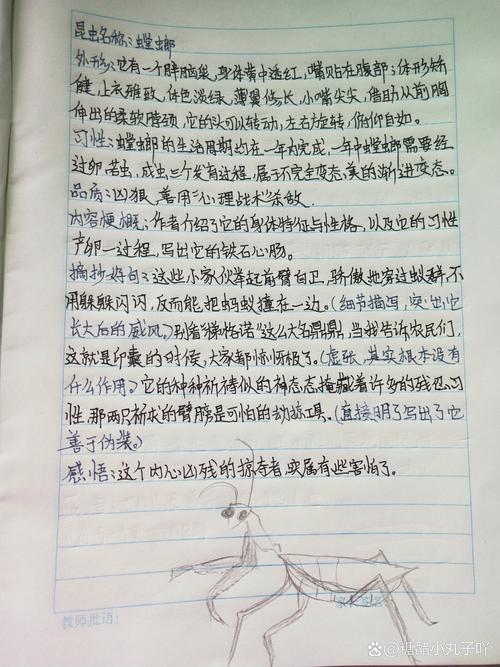 昆虫名称：螳螂
外形：它有一个胖脑袋，身体黄中透红，嘴贴在腹部；体形矫
健，上衣雅致，体色淡绿，薄翼修长，小嘴尖尖，借助从前胸
伸出的柔软脖颈，它的头可以转动，左右旋转，俯仰自如。
习性：螳螂的生活周期均在一年内完成，一年中螳螂需要经
过卵、若虫，成虫三个发育过程，属于不完全变态类的渐进变态。
品质：凶狠，善用“心理战术”杀敌。
内容梗概：作者介绍了它的身体特征与性格，以及它的习性
产卵一过程，写出它的铁石心肠。
摘抄好句：这些小家伙举起前臂自卫，骄傲地穿过蚁群，不
用躲躲闪闪，反而能把蚂蚁撞在一边。(细节描写，突出它
长大后的威风。)别看“梯格诺”这么大名鼎鼎，当我告诉农民们，
这就是卵囊的时候，大家都惊讶极了。(虚张，其实根本没有
什么作用。)它的种种祈祷似的神态，掩藏着许多的残忍习
性，那两只祈求的臂膀是可怕的劫掠工具。(直接明了写出了它
善于伪装。)
感悟：这个内心凶残的掠夺者，实属有些害怕了。
家长签名
教师批语：
@糖醋小丸子吖